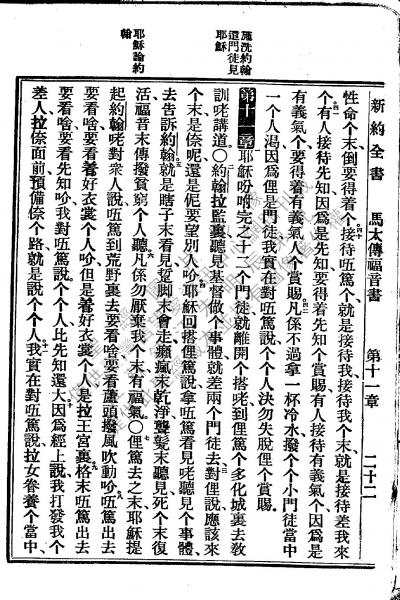 新約全書 馬太傳福音書 第十一章 二十二
施洗約翰
遣門徒見
耶穌
耶穌論約
翰
性命个末倒要得着个接待吾篤个就是接待我接待我个末就是接待差我來
个有人接待先知因爲是先知要得着先知个賞賜有人接待有義氣个因爲是
有義氣个要得着有義氣个个賞賜凡係不過拿一杯冷水撥个个小門徒當中
一个人渴因爲俚是門徒我實在對吾篤說个个人決勿失脫俚个賞賜
第十一章耶穌吩咐完之十二个門徒就離開个搭咾到俚篤个多化城裏去敎
訓咾講道〇約翰拉監裏聽見基督做个事體就差兩个門徒去對俚說應該來
个末是倷呢還是伲要望別人吤耶穌回搭俚篤說拿吾篤看見咾聽見个事體
去告訴約翰就是瞎子末看見蹩脚末會走癩瘋末乾淨聾髼末聽見死个末復
活福音末傳撥貧窮个人聽凡係勿厭棄我个末有福氣〇俚篤去之末耶穌提
起約翰咾對衆人說吾篤到荒野裏去要看啥要看蘆頭撥風吹動吤吾篤出去
要看啥要看着好衣裳个人吤但是着好衣裳个人是拉王宮裏格末吾篤出去
要看啥要看先知吤我對吾篤說个个人比先知還大因爲經上說我打發我个
差人拉倷面前預備倷个路就是說个个人我實在對吾篤說拉女眷養个當中